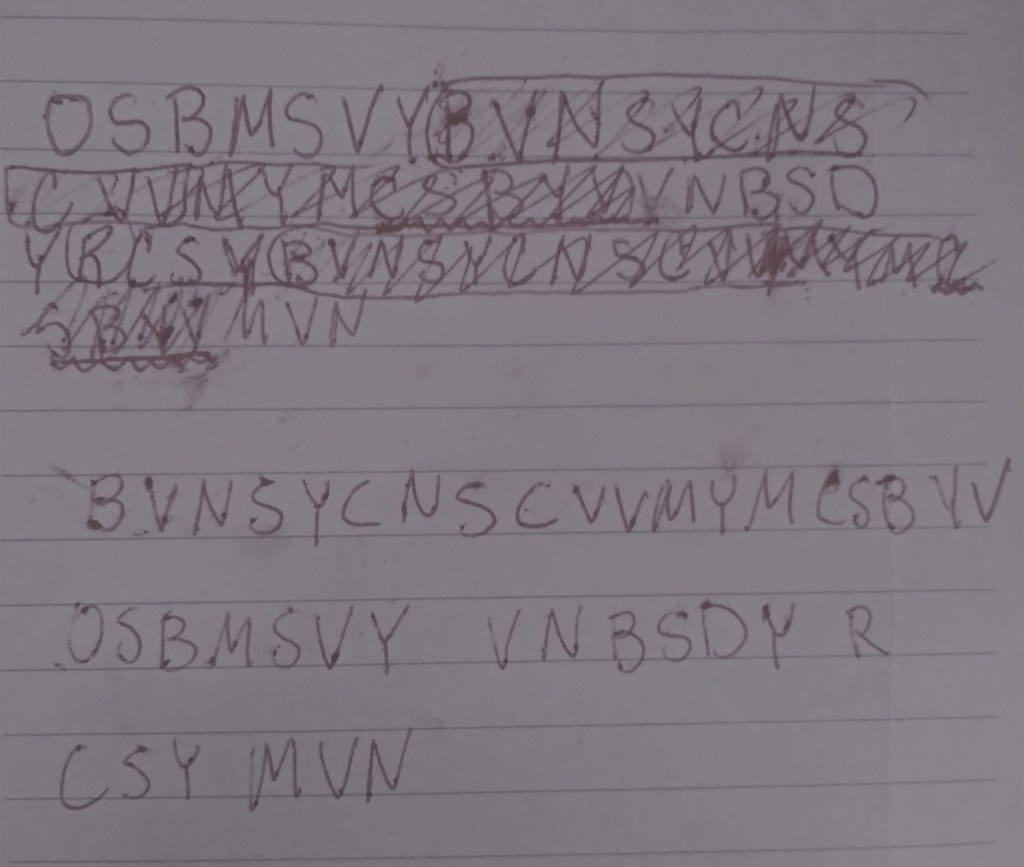 OSBMSVYBVNSYCNS
CVVMYMCSBYVVNBSD
YRCSYBVNSYCNSC
MVN
BVNSYCNSCVVMYMCSBYV
OSBMSVY VNBSDY R
CSY MVN